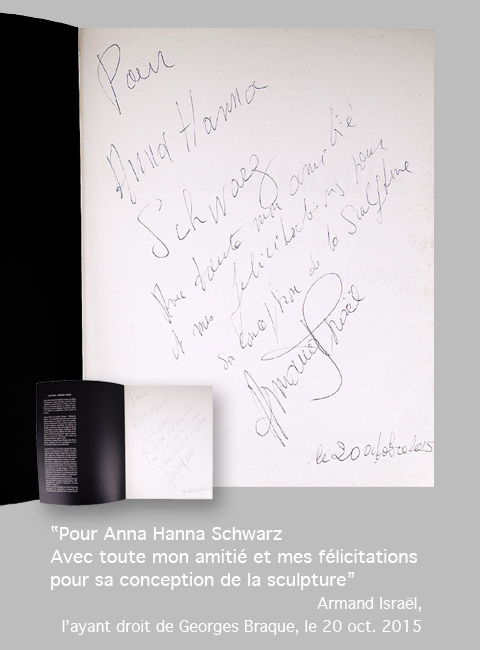 Pour
Anna Hanna
Schwarz
Avec toute mon amitié
et mes félicitations pour
sa conception de la Sculpture
Armand Israël
le 20 octobre 2015
"Pour Anna Hanna Schwarz
Avec toute mon amitié et mes félicitations
pour sa conception de la sculpture"
Armand Israël,
l'ayant droit de Georges Braque, le 20 oct. 2015